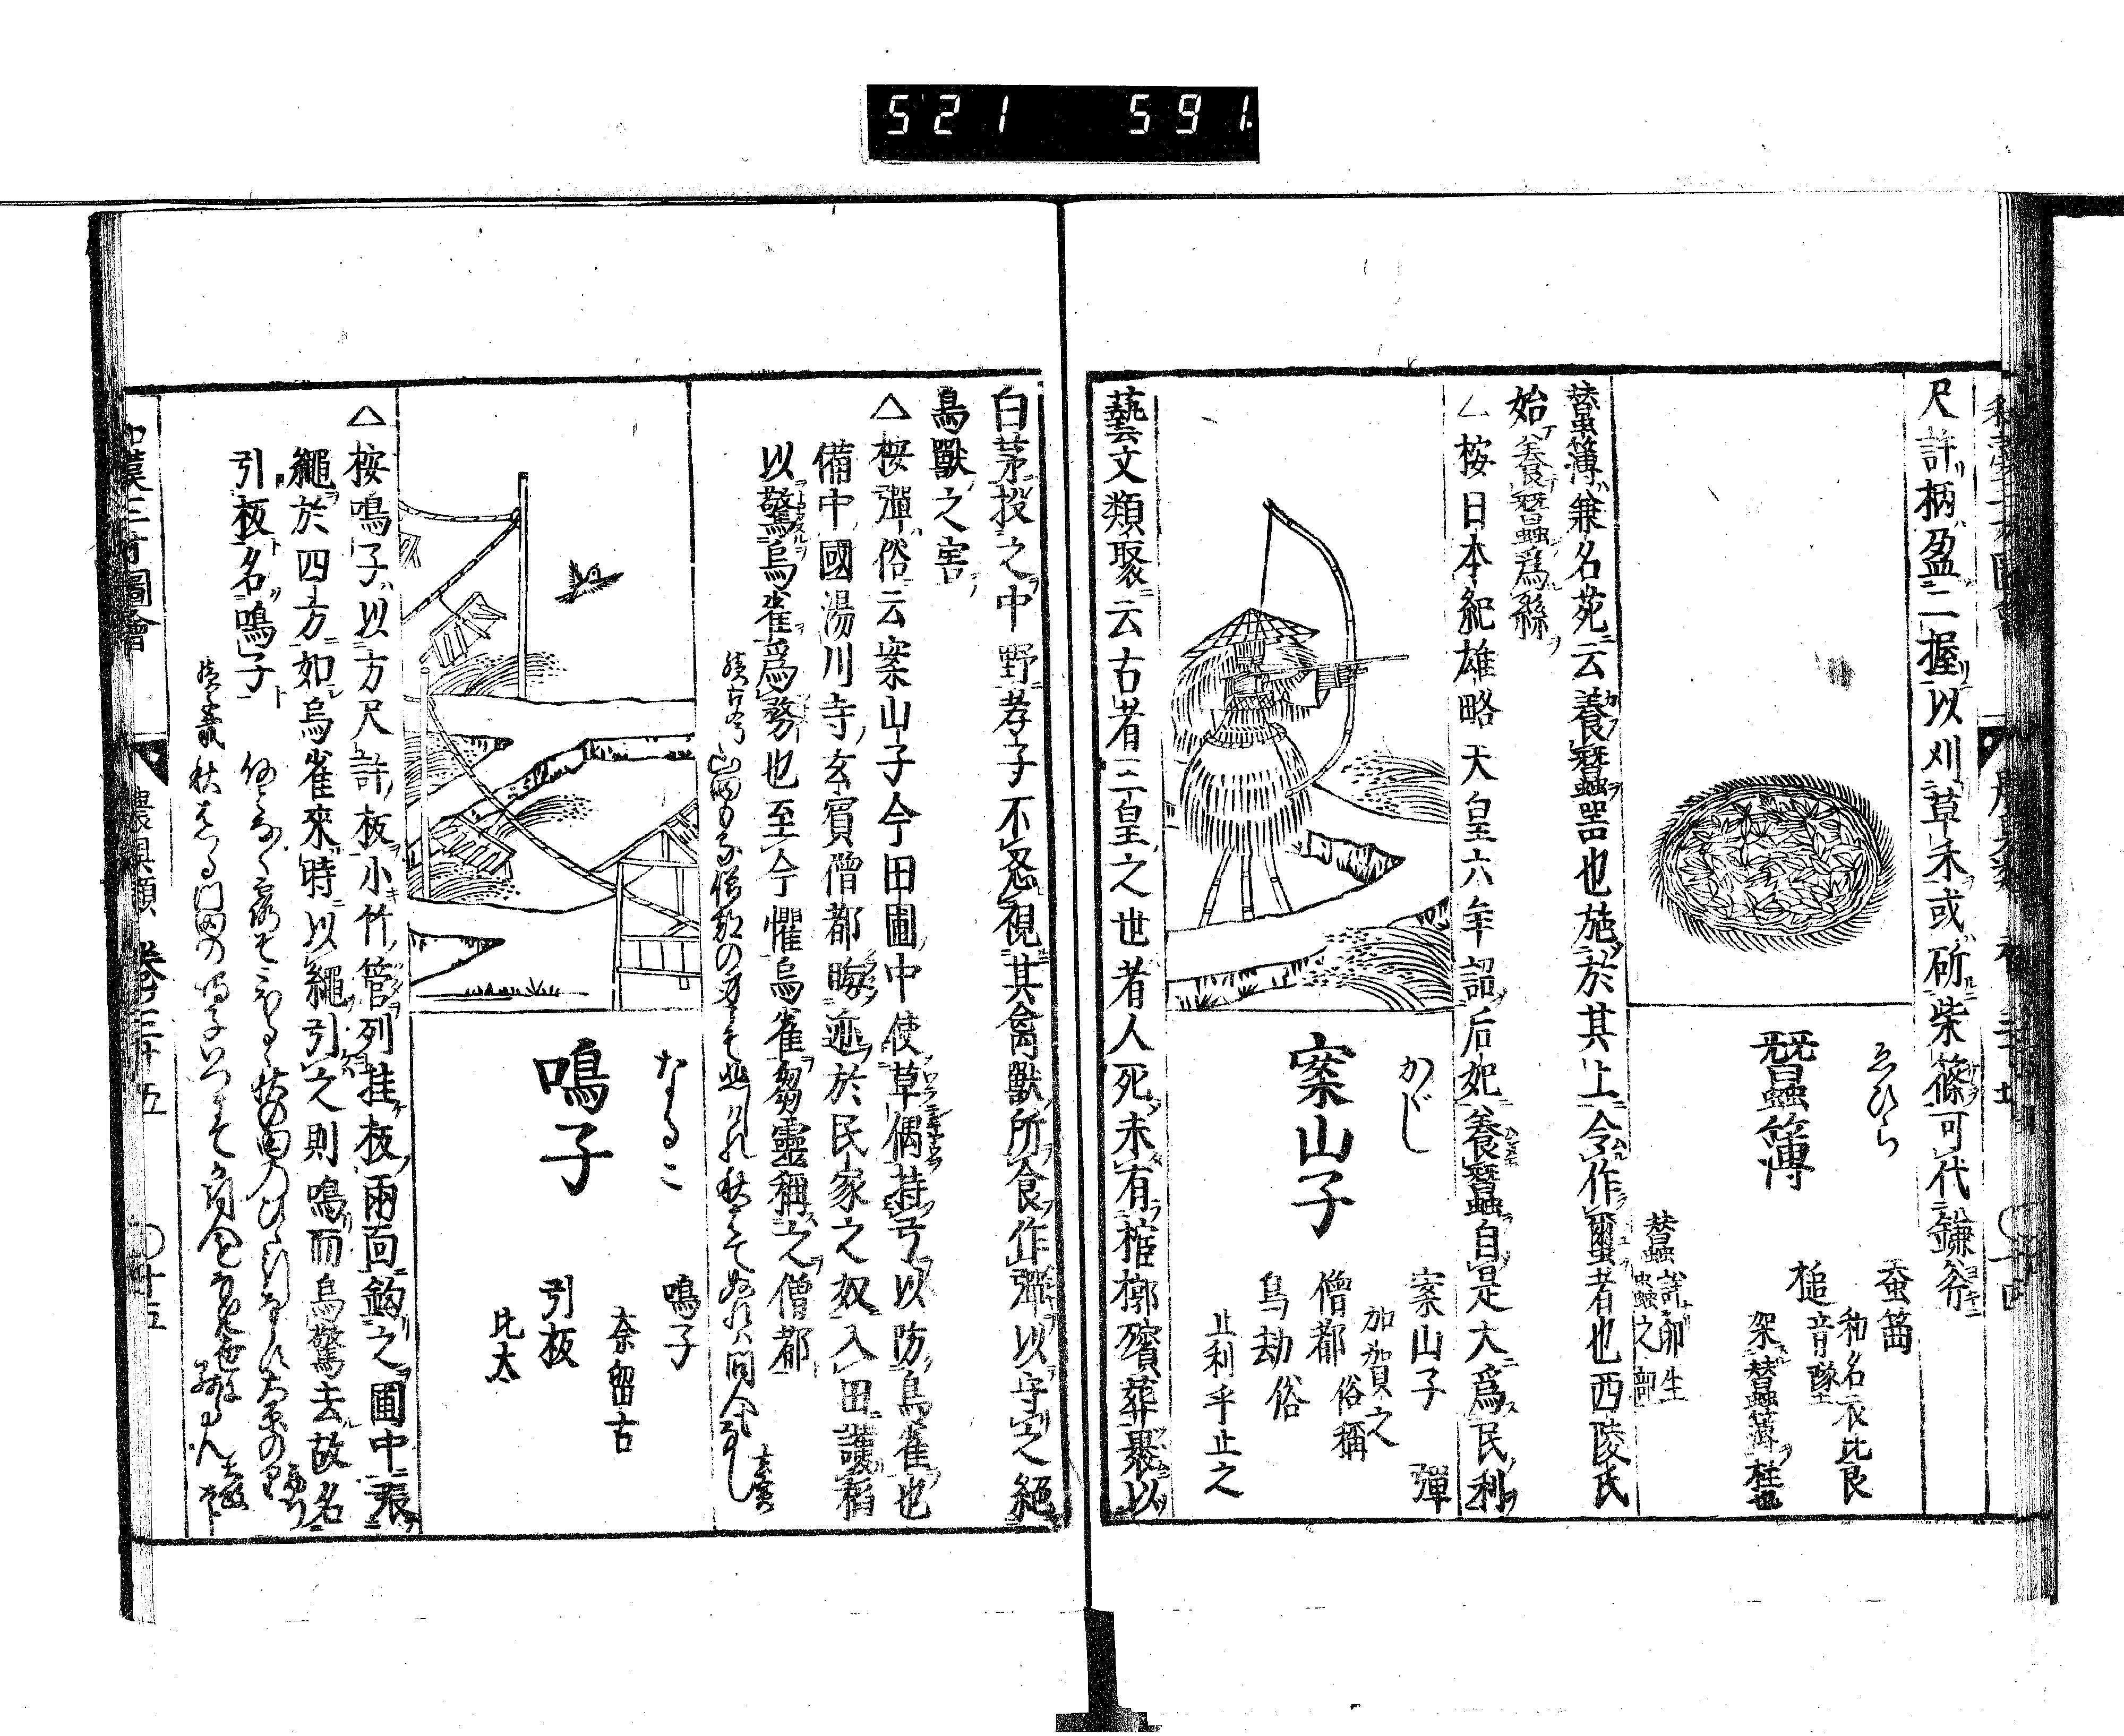 521 591.
尺許柄盈二握以刈草木或斫柴篠可代鎌斧
ゑひら
蠶簿
蚕筁
和名衣比良
槌音墜
架蠶簿柱也
蠶詳卵生
蟲之部
蠶簿兼名苑云養蠶器也施於其上令作蠒者也西陵氏
始養蠶爲絲
△按日本紀雄略天皇六年詔后妃養蠶自是大爲民利
かゞし
案山子
案山子 彈
加賀之
僧都 俗稱
鳥劫 俗
止利乎止之
藝文類聚云古者三皇之世者人死未有棺槨殯葬裹以
白茅投之中野孝子不忍視其禽獸所食作彈以守之絕
鳥獸之害
△按彈俗云案山子今田圃中使草偶持弓以防鳥雀也
備中國湯川寺玄賓僧都晦迹於民家之奴入田護稻
以驚鳥雀爲務也至今懼鳥雀芻靈稱之僧都
續古今 山田もる僧都の身こそ悲しけれ秋はてぬれは問人もなし 玄賓
なるこ
鳴子
鳴子
奈留古
引板
比太
△按鳴子以方尺許板小竹管列挂板兩面鉤之圃中張
繩於四方如鳥雀來時以繩引之則鳴而鳥驚去故名
引板名鳴子
和漢三才圖會
農具類 卷三十五
〇十五